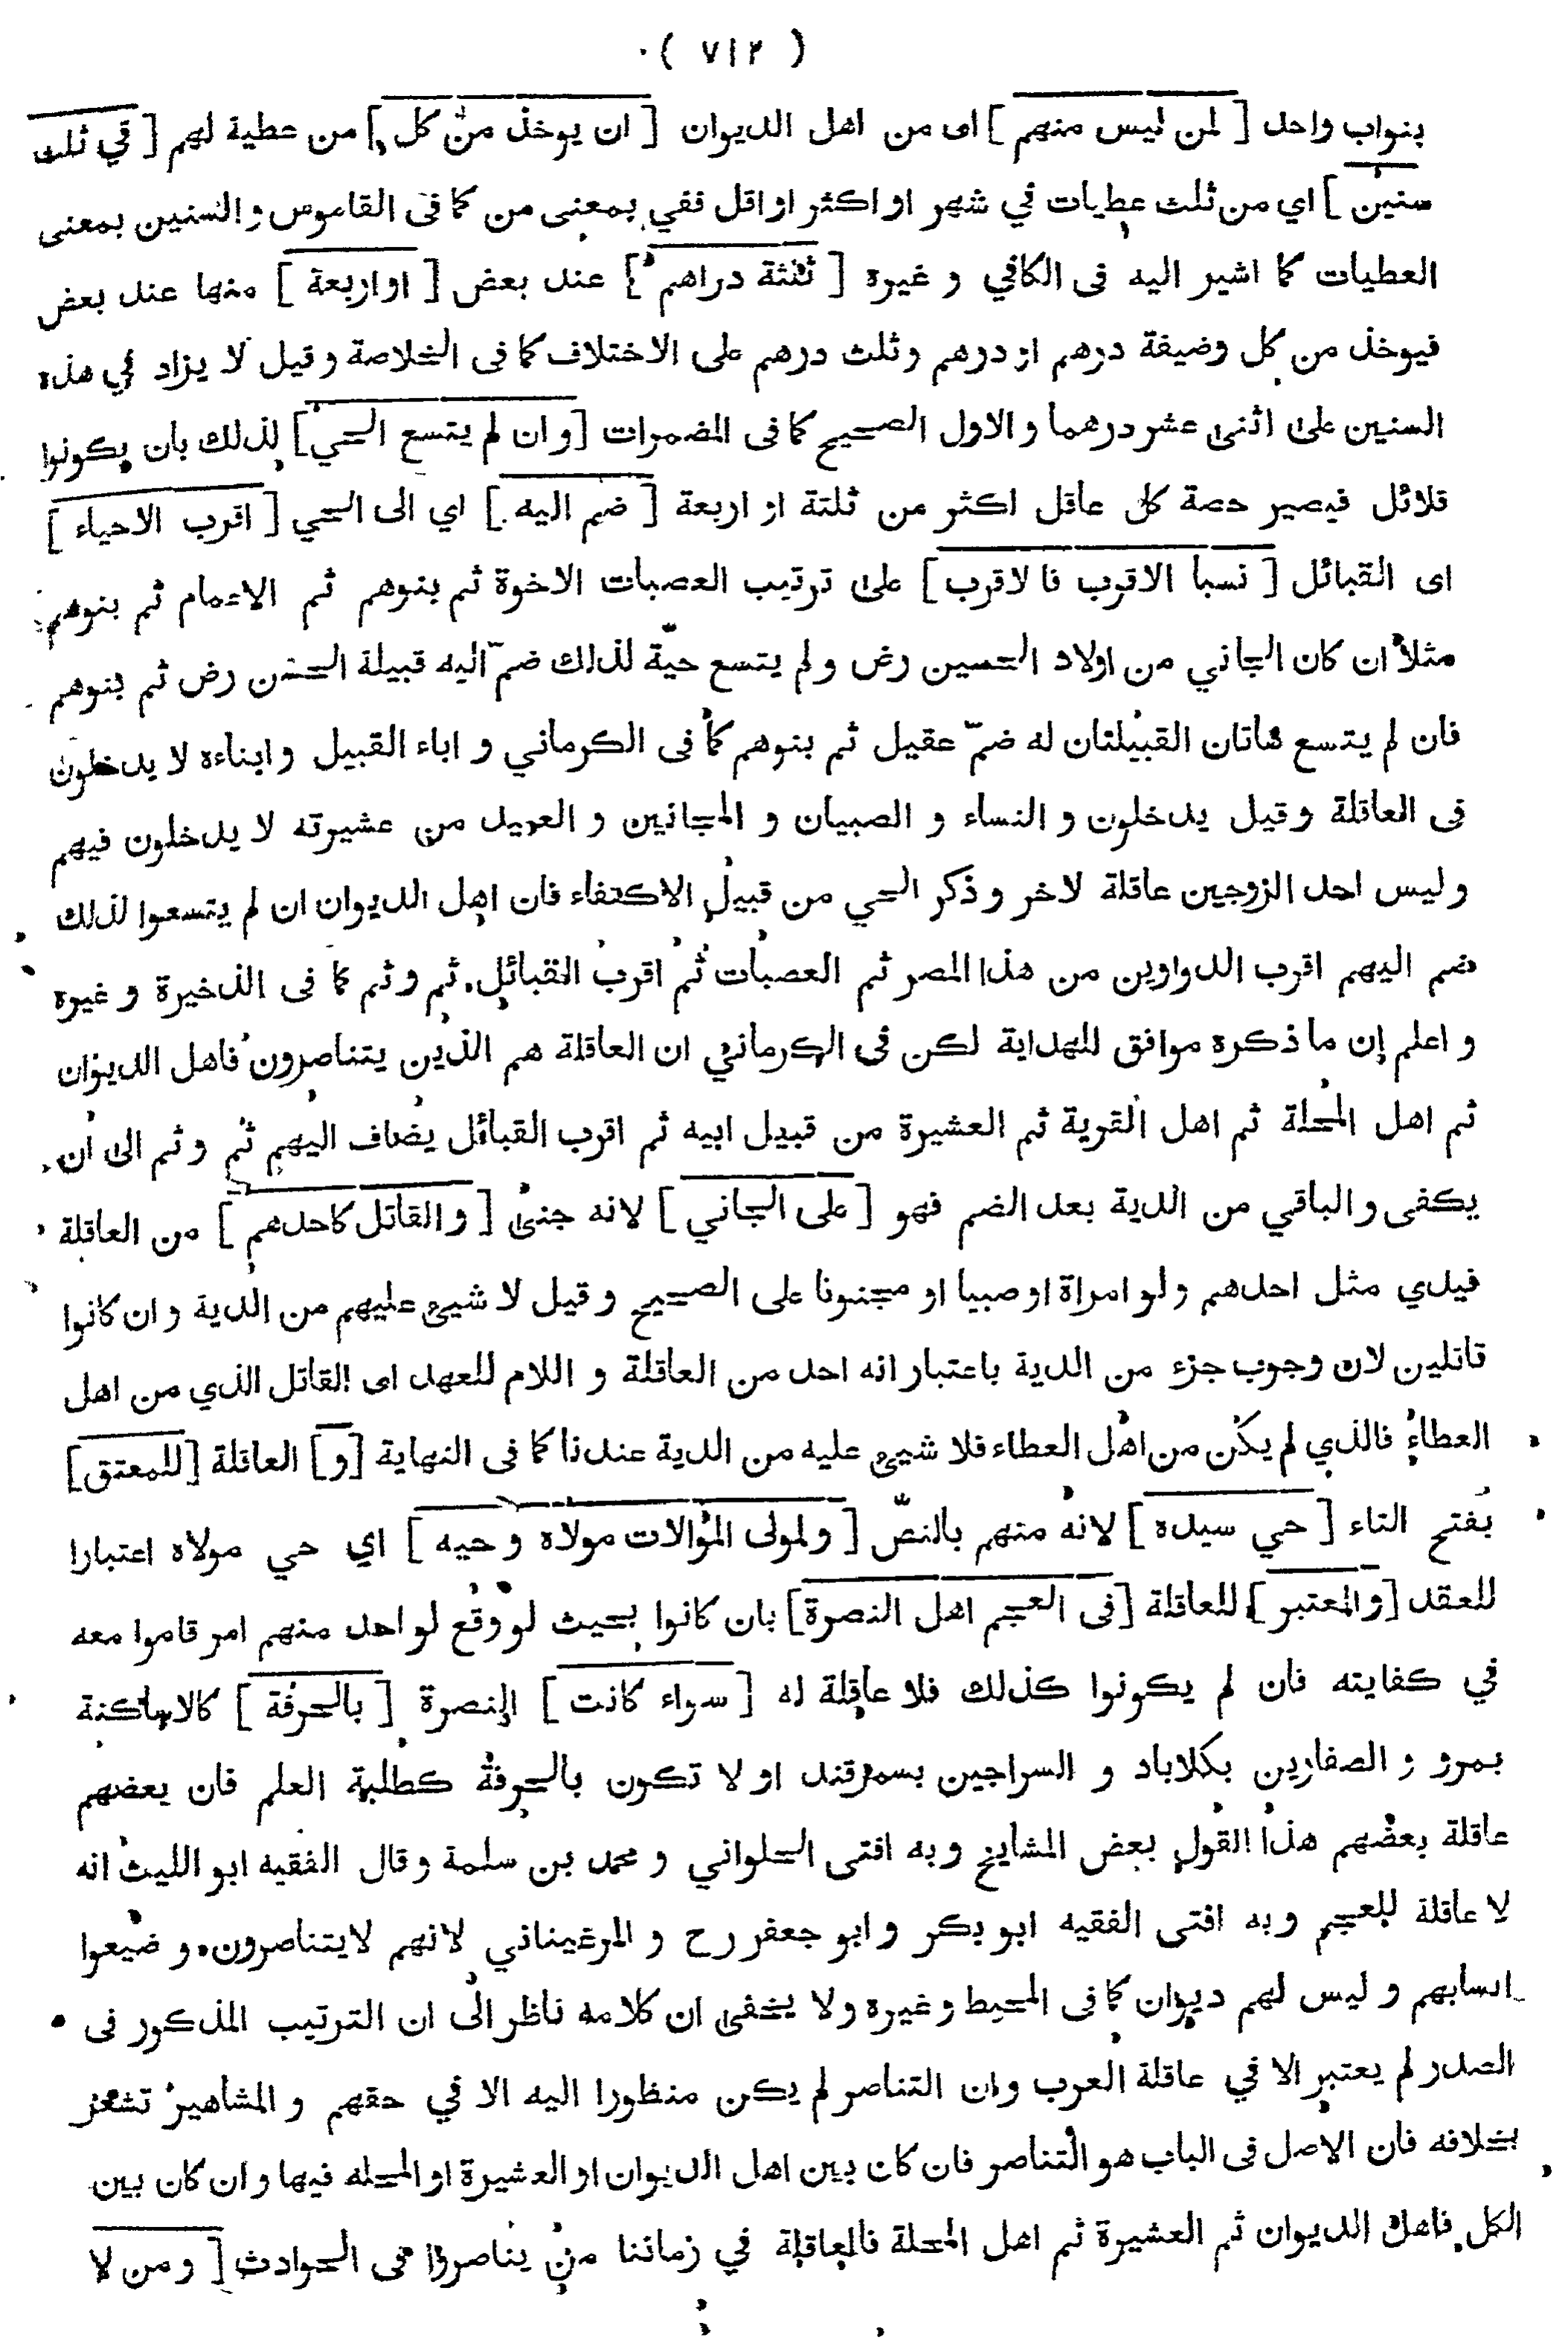 ( ٧١٢ )
بنواب واحد [ لمن ليس منهم ] اى من اهل الديوان [ ان يوخذ من كل ] من عطية لهم [ في ثلث
سنين ] اي من ثلث عطيات في شهر او اكثر او اقل ففي بمعنى من كما فى القاموس و السنين بمعنى
العطيات كما اشير اليه فى الكافي و غيره [ ثلثة دراهم ] عند بعض [ او اربعة ] منها عند بعض
فيوخذ من كل وضيفة درهم او درهم و ثلث درهم على الاختلاف كما فى الخلاصة و قيل لا يزاد في هذه
السنين على اثنى عشر درهما و الاول الصحيح كما فى المضمرات [ و ان لم يتسع الحي ] لذلك بان يكونوا
قلائل فيصير حصة كل عاقل اكثر من ثلثة او اربعة [ ضم اليه ] اي الى الحي [ اقرب الاحياء ]
اى القبائل [ نسبا الاقرب فالاقرب ] على ترتيب العصبات الاخوة ثم بنوهم ثم الاعمام ثم بنوهم
مثلا ان كان الجاني من اولاد الحسين رض و لم يتسع حيّة لذلك ضمّ اليه قبيلة الحسن رض ثم بنوهم
فان لم يتسع هاتان القبيلتان له ضمّ عقيل ثم بنوهم كما فى الكرماني و اباء القبيل و ابناءه لا يدخلون
فى العاقلة و قيل يدخلون و النساء و الصبيان و المجانين و العبيد من عشيرته لا يدخلون فيهم
و ليس احد الزوجين عاقلة لاخر و ذكر الحي من قبيل الاكتفاء فان اهل الديوان ان لم يتسعوا لذلك
ضم اليهم اقرب الدواوين من هذا المصر ثم العصبات ثم اقرب القبائل ثم و ثم كما فى الذخيرة و غيره
و اعلم ان ما ذكره موافق للهداية لكن فى الكرماني ان العاقلة هم الذين يتناصرون فاهل الديوان
ثم اهل المحلة ثم اهل القرية ثم العشيرة من قبيل ابيه ثم اقرب القبائل يضاف اليهم ثم و ثم الى ان
يكفى و الباقي من الدية بعد الضم فهو [ على الجاني ] لانه جنى [ و القاتل كاحدهم ] من العاقلة
فيدي مثل احدهم و لو امراة او صبيا او مجنونا على الصحيح و قيل لا شيئ عليهم من الدية و ان كانوا
قاتلين لان وجوب جزء من الدية باعتبار انه احد من العاقلة و اللام للعهد اى القاتل الذي من اهل
العطاء فالذي لم يكن من اهل العطاء فلا شيئ عليه من الدية عندنا كما فى النهاية [ و ] العاقلة [ للمعتق ]
بفتح التاء [ حي سيده ] لانه منهم بالنصّ [ و لمولى الموالات مولاه و حيه ] اي حي مولاه اعتبارا
للعقد [ و المعتبر ] للعاقلة [ فى العجم اهل النصرة ] بان كانوا بحيث لو وقع لواحد منهم امر قاموا معه
في كفايته فان لم يكونوا كذلك فلا عاقلة له [ سواء كانت ] النصرة [ بالحرفة ] كالاساكنة
بمرو و الصفارين بكلاباد و السراجين بسمرقند او لا تكون بالحرفة كطلبة العلم فان بعضهم
عاقلة بعضهم هذا القول بعض المشايخ و به افتى الحلواني و محمد بن سلمة و قال الفقيه ابو الليث انه
لا عاقلة للعجم و به افتى الفقيه ابو بكر و ابو جعفر رح و المرغيناني لانهم لايتناصرون و ضيعوا
انسابهم و ليس لهم ديوان كما فى المحيط و غيره و لا يخفى ان كلامه ناظر الى ان الترتيب المذكور فى
الصدر لم يعتبر الا في عاقلة العرب و ان التناصر لم يكن منظورا اليه الا في حقهم و المشاهير تشعر
بخلافه فان الاصل فى الباب هو التناصر فان كان بين اهل الديوان او العشيرة او المحله فيها و ان كان بين
الكل فاهل الديوان ثم العشيرة ثم اهل المحلة فالعاقلة في زماننا من يناصروا فى الحوادث [ و من لا